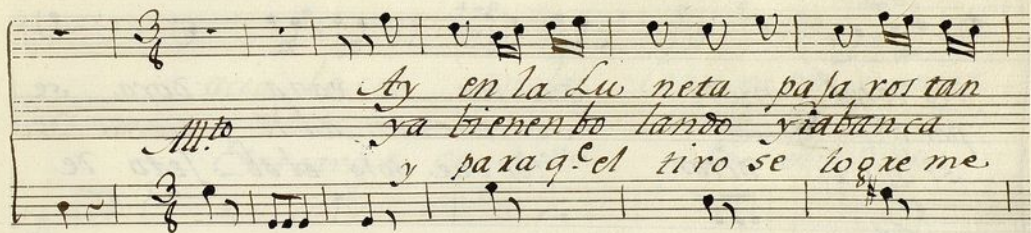 3/8
Ay en la Lu neta pajaros tan
All.to ya bienen bo lando y
y para q.e el tiro se logre me
3/8